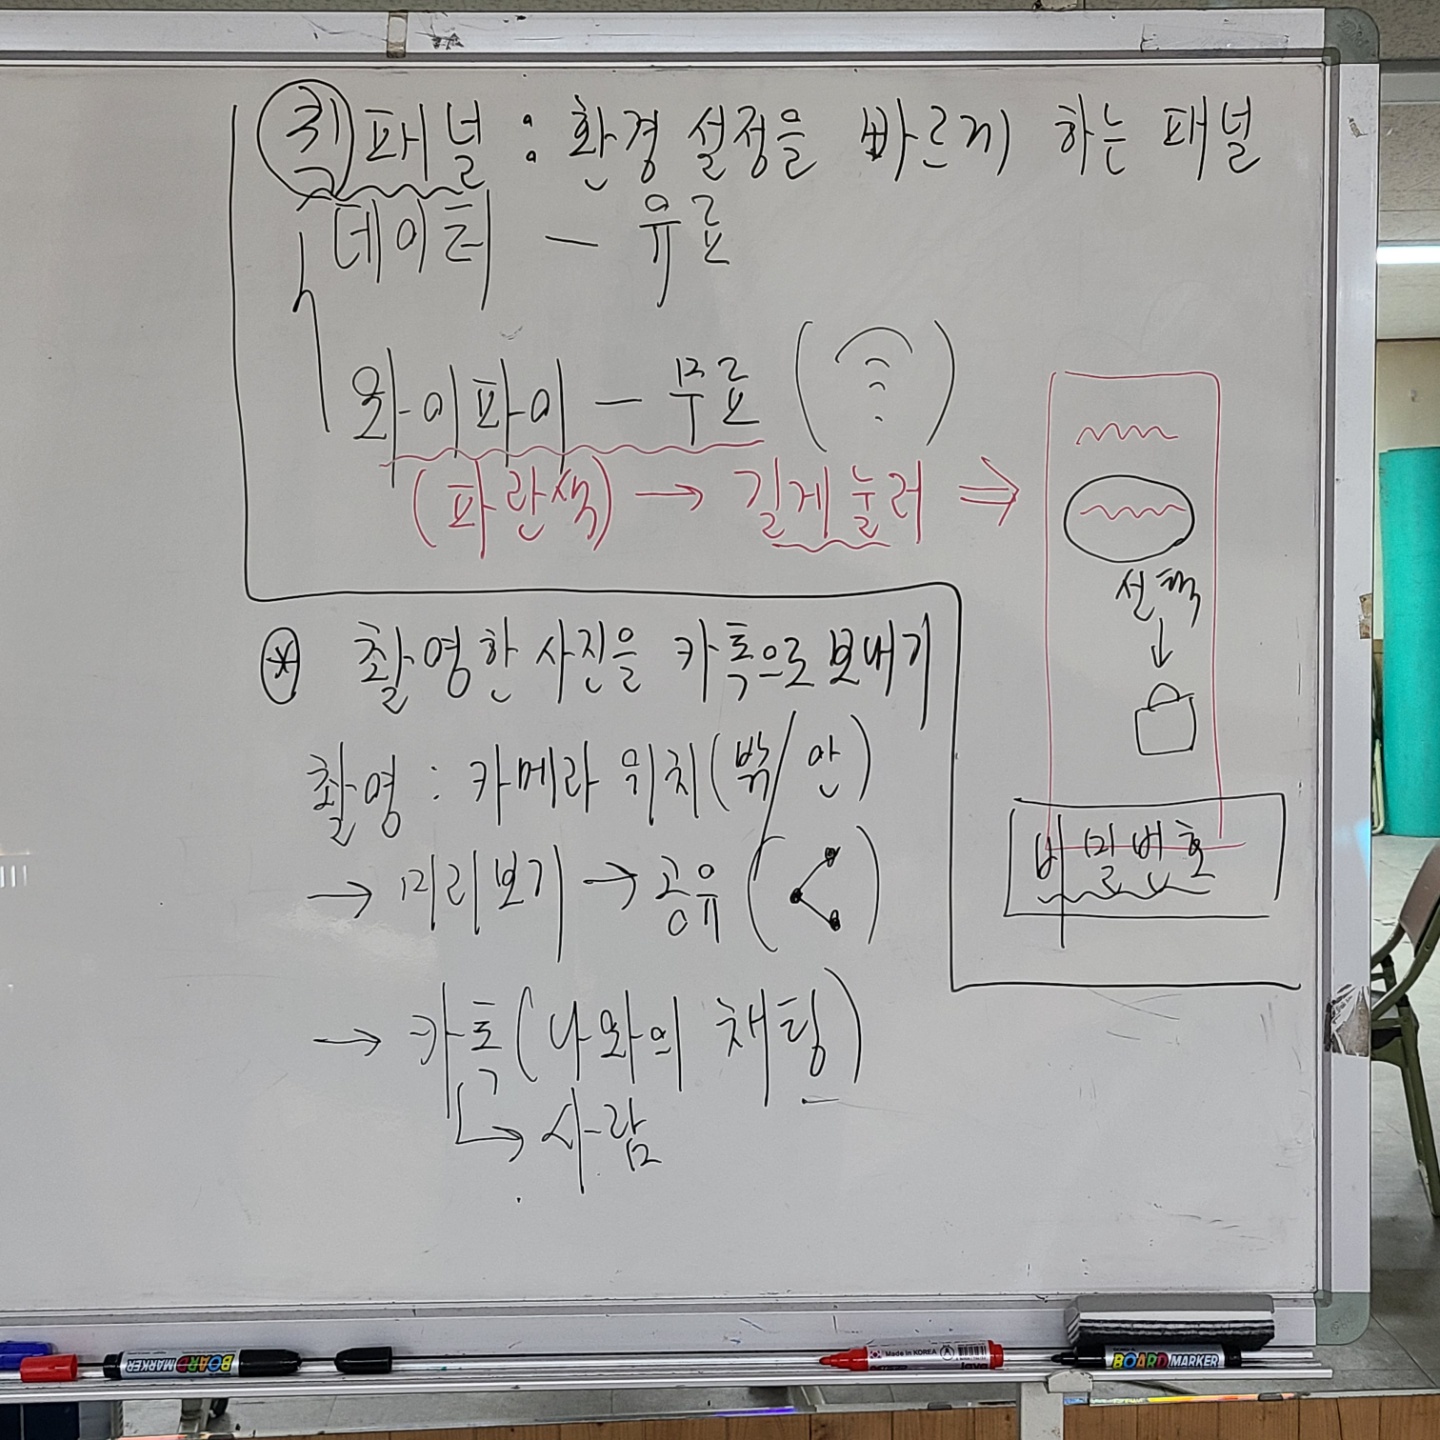 퀵패널 : 환경 설정을 빠르게 하는 패널
데이터 — 유료
와이파이 — 무료
(파란색) → 길게 눌러 ⇒
선택
↓
비밀번호
* 촬영한 사진을 카톡으로 보내기
촬영 : 카메라 위치(밖/안)
→ 미리보기 → 공유
→ 카톡(나와의 채팅)
→ 사람
BOARD MARKER
Made in KOREA
BOARD MARKER